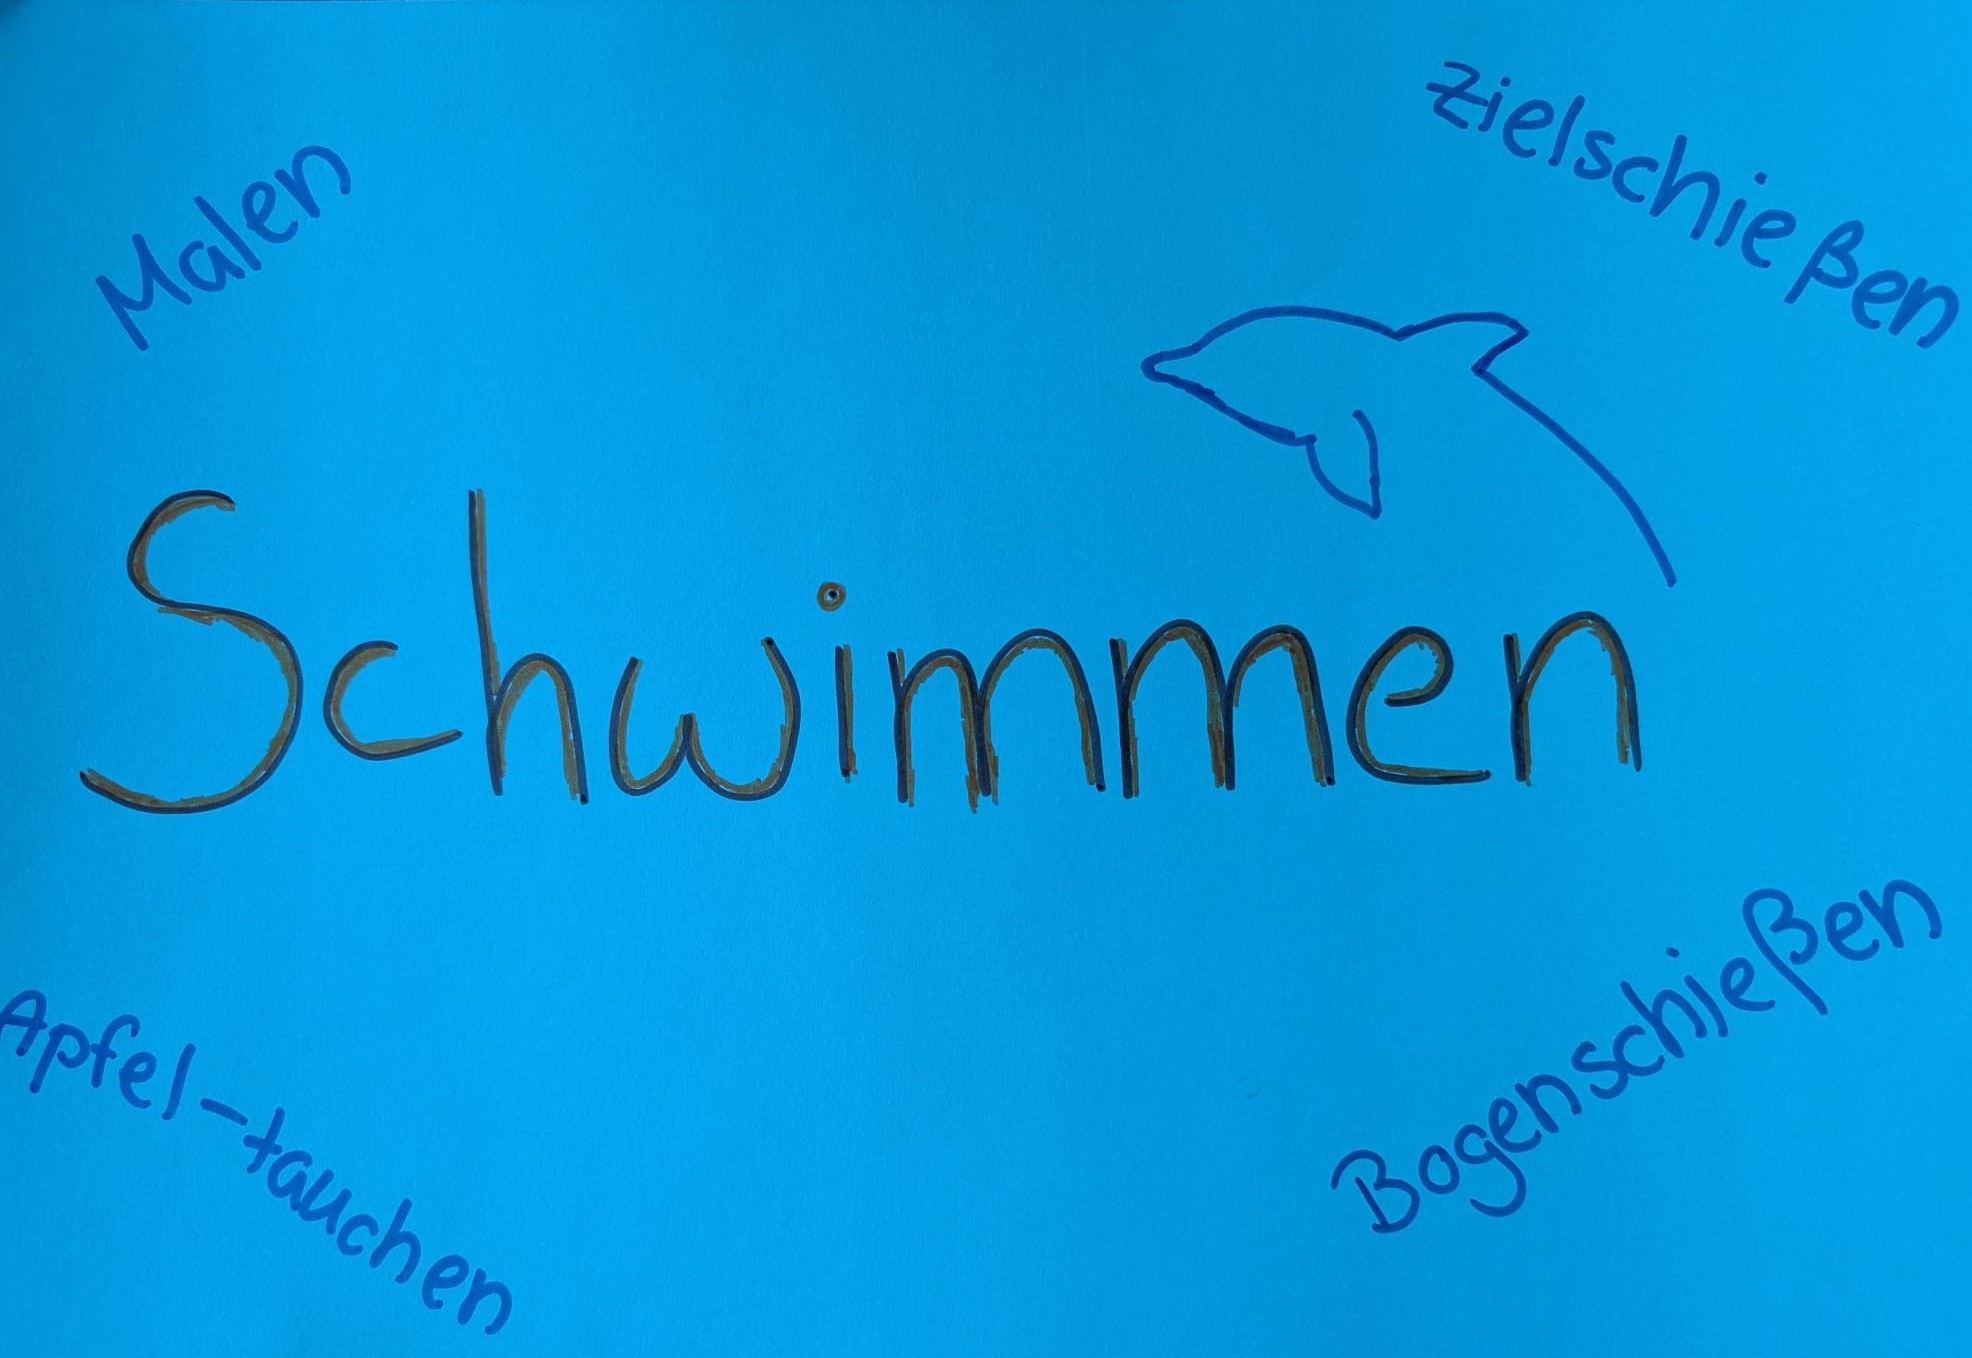 Malen
Zielschießen
Schwimmen
Apfel-tauchen
Bogenschießen